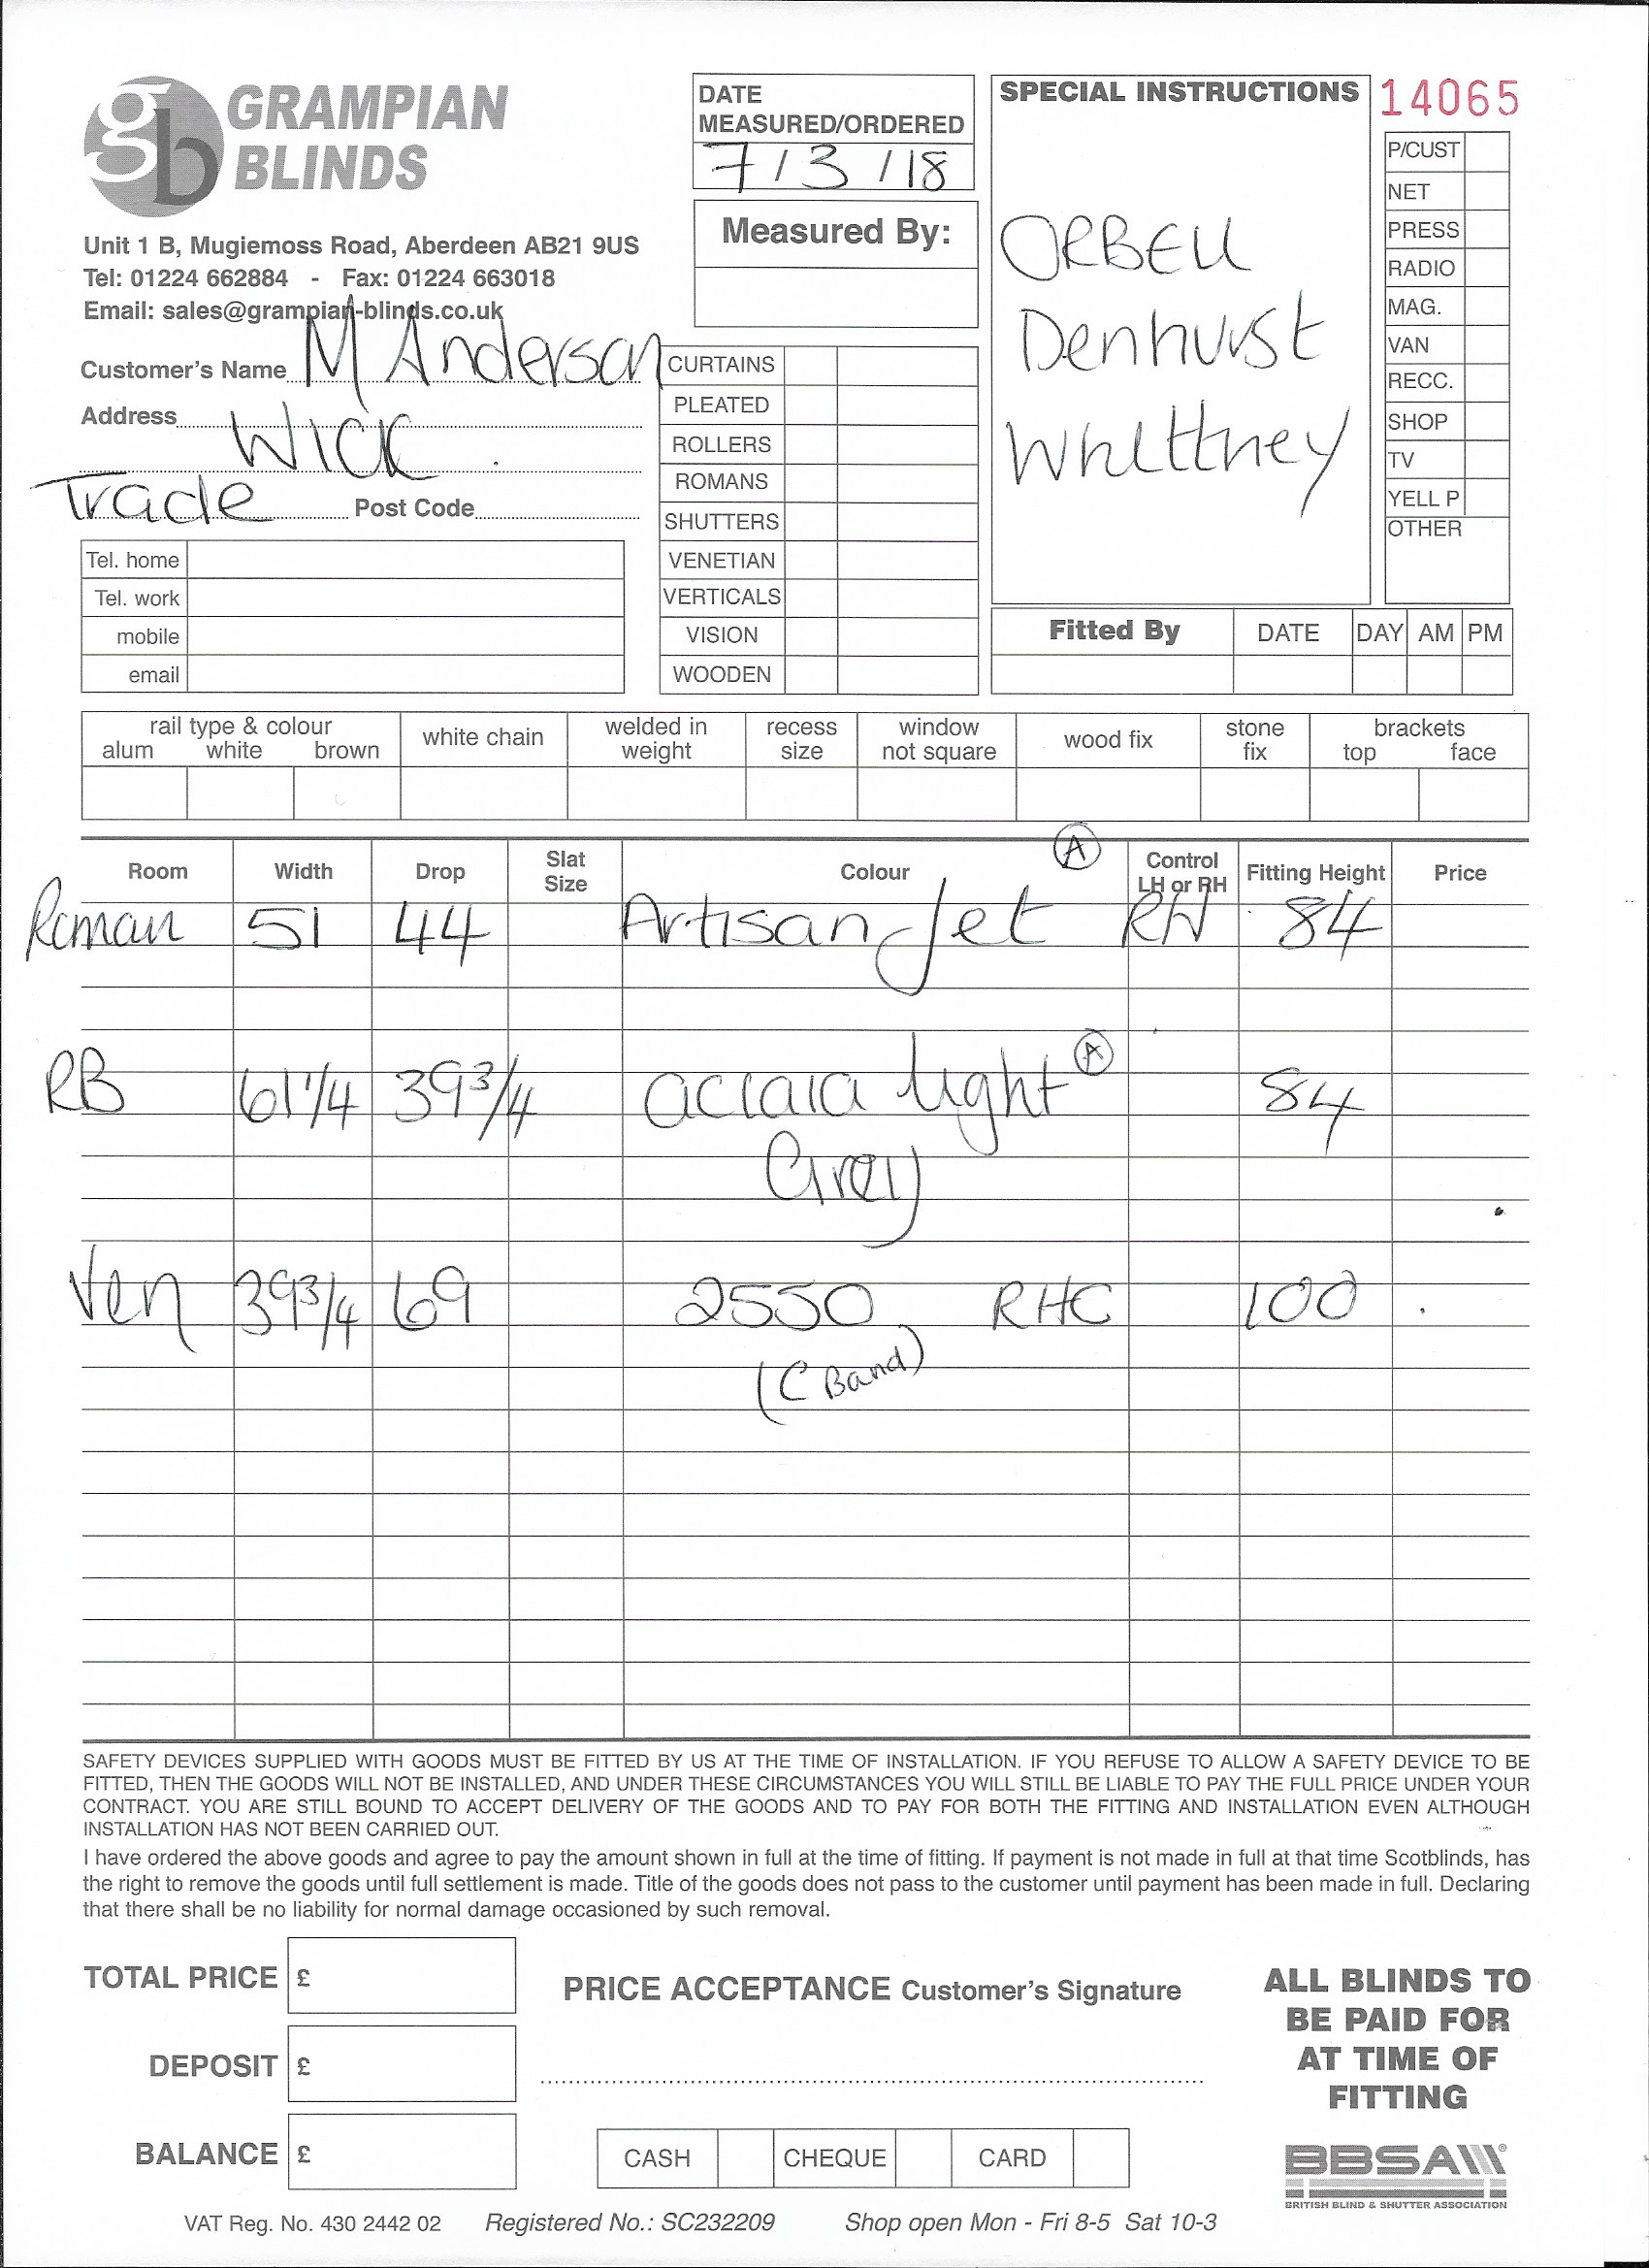 gb GRAMPIAN
BLINDS
Unit 1 B, Mugiemoss Road, Aberdeen AB21 9US
Tel: 01224 662884 - Fax: 01224 663018
Email: sales@grampian-blinds.co.uk
Customer's Name M Anderson
Address Wick.
Trade Post Code
Tel. home
Tel. work
mobile
email
DATE
MEASURED/ORDERED
7/3/18
Measured By:
CURTAINS
PLEATED
ROLLERS
ROMANS
SHUTTERS
VENETIAN
VERTICALS
VISION
WOODEN
SPECIAL INSTRUCTIONS
ORBELL
Denhurst
Whittney
14065
P/CUST
NET
PRESS
RADIO
MAG.
VAN
RECC.
SHOP
TV
YELL P
OTHER
Fitted By DATE DAY AM PM
rail type & colour
alum white brown
white chain
welded in
weight
recess
size
window
not square
wood fix
stone
fix
brackets
top face
Room Width Drop Slat Size Colour A Control LH or RH Fitting Height Price
Roman 51 44 Artisan Jet RH 84
RB 61 1/4 39 3/4 acraia light A 84
Grey
Ven 39 3/4 69 2550 RHC 100
(C Band)
SAFETY DEVICES SUPPLIED WITH GOODS MUST BE FITTED BY US AT THE TIME OF INSTALLATION. IF YOU REFUSE TO ALLOW A SAFETY DEVICE TO BE
FITTED, THEN THE GOODS WILL NOT BE INSTALLED, AND UNDER THESE CIRCUMSTANCES YOU WILL STILL BE LIABLE TO PAY THE FULL PRICE UNDER YOUR
CONTRACT. YOU ARE STILL BOUND TO ACCEPT DELIVERY OF THE GOODS AND TO PAY FOR BOTH THE FITTING AND INSTALLATION EVEN ALTHOUGH
INSTALLATION HAS NOT BEEN CARRIED OUT.
I have ordered the above goods and agree to pay the amount shown in full at the time of fitting. If payment is not made in full at that time Scotblinds, has
the right to remove the goods until full settlement is made. Title of the goods does not pass to the customer until payment has been made in full. Declaring
that there shall be no liability for normal damage occasioned by such removal.
TOTAL PRICE £
DEPOSIT £
BALANCE £
PRICE ACCEPTANCE Customer's Signature
CASH CHEQUE CARD
ALL BLINDS TO
BE PAID FOR
AT TIME OF
FITTING
BBSA
BRITISH BLIND & SHUTTER ASSOCIATION
VAT Reg. No. 430 2442 02 Registered No.: SC232209 Shop open Mon - Fri 8-5 Sat 10-3